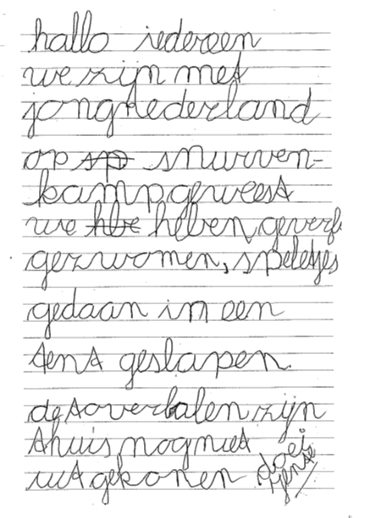 hallo iedereen
we zijn met
jongnederland
op sp snurven-
kamp geweest
we hbe heben geverf
gezwomen, speletjes
gedaan in een
tent geslapen.
de toverbalen zijn
thuis nog niet
uit gekonen. doei